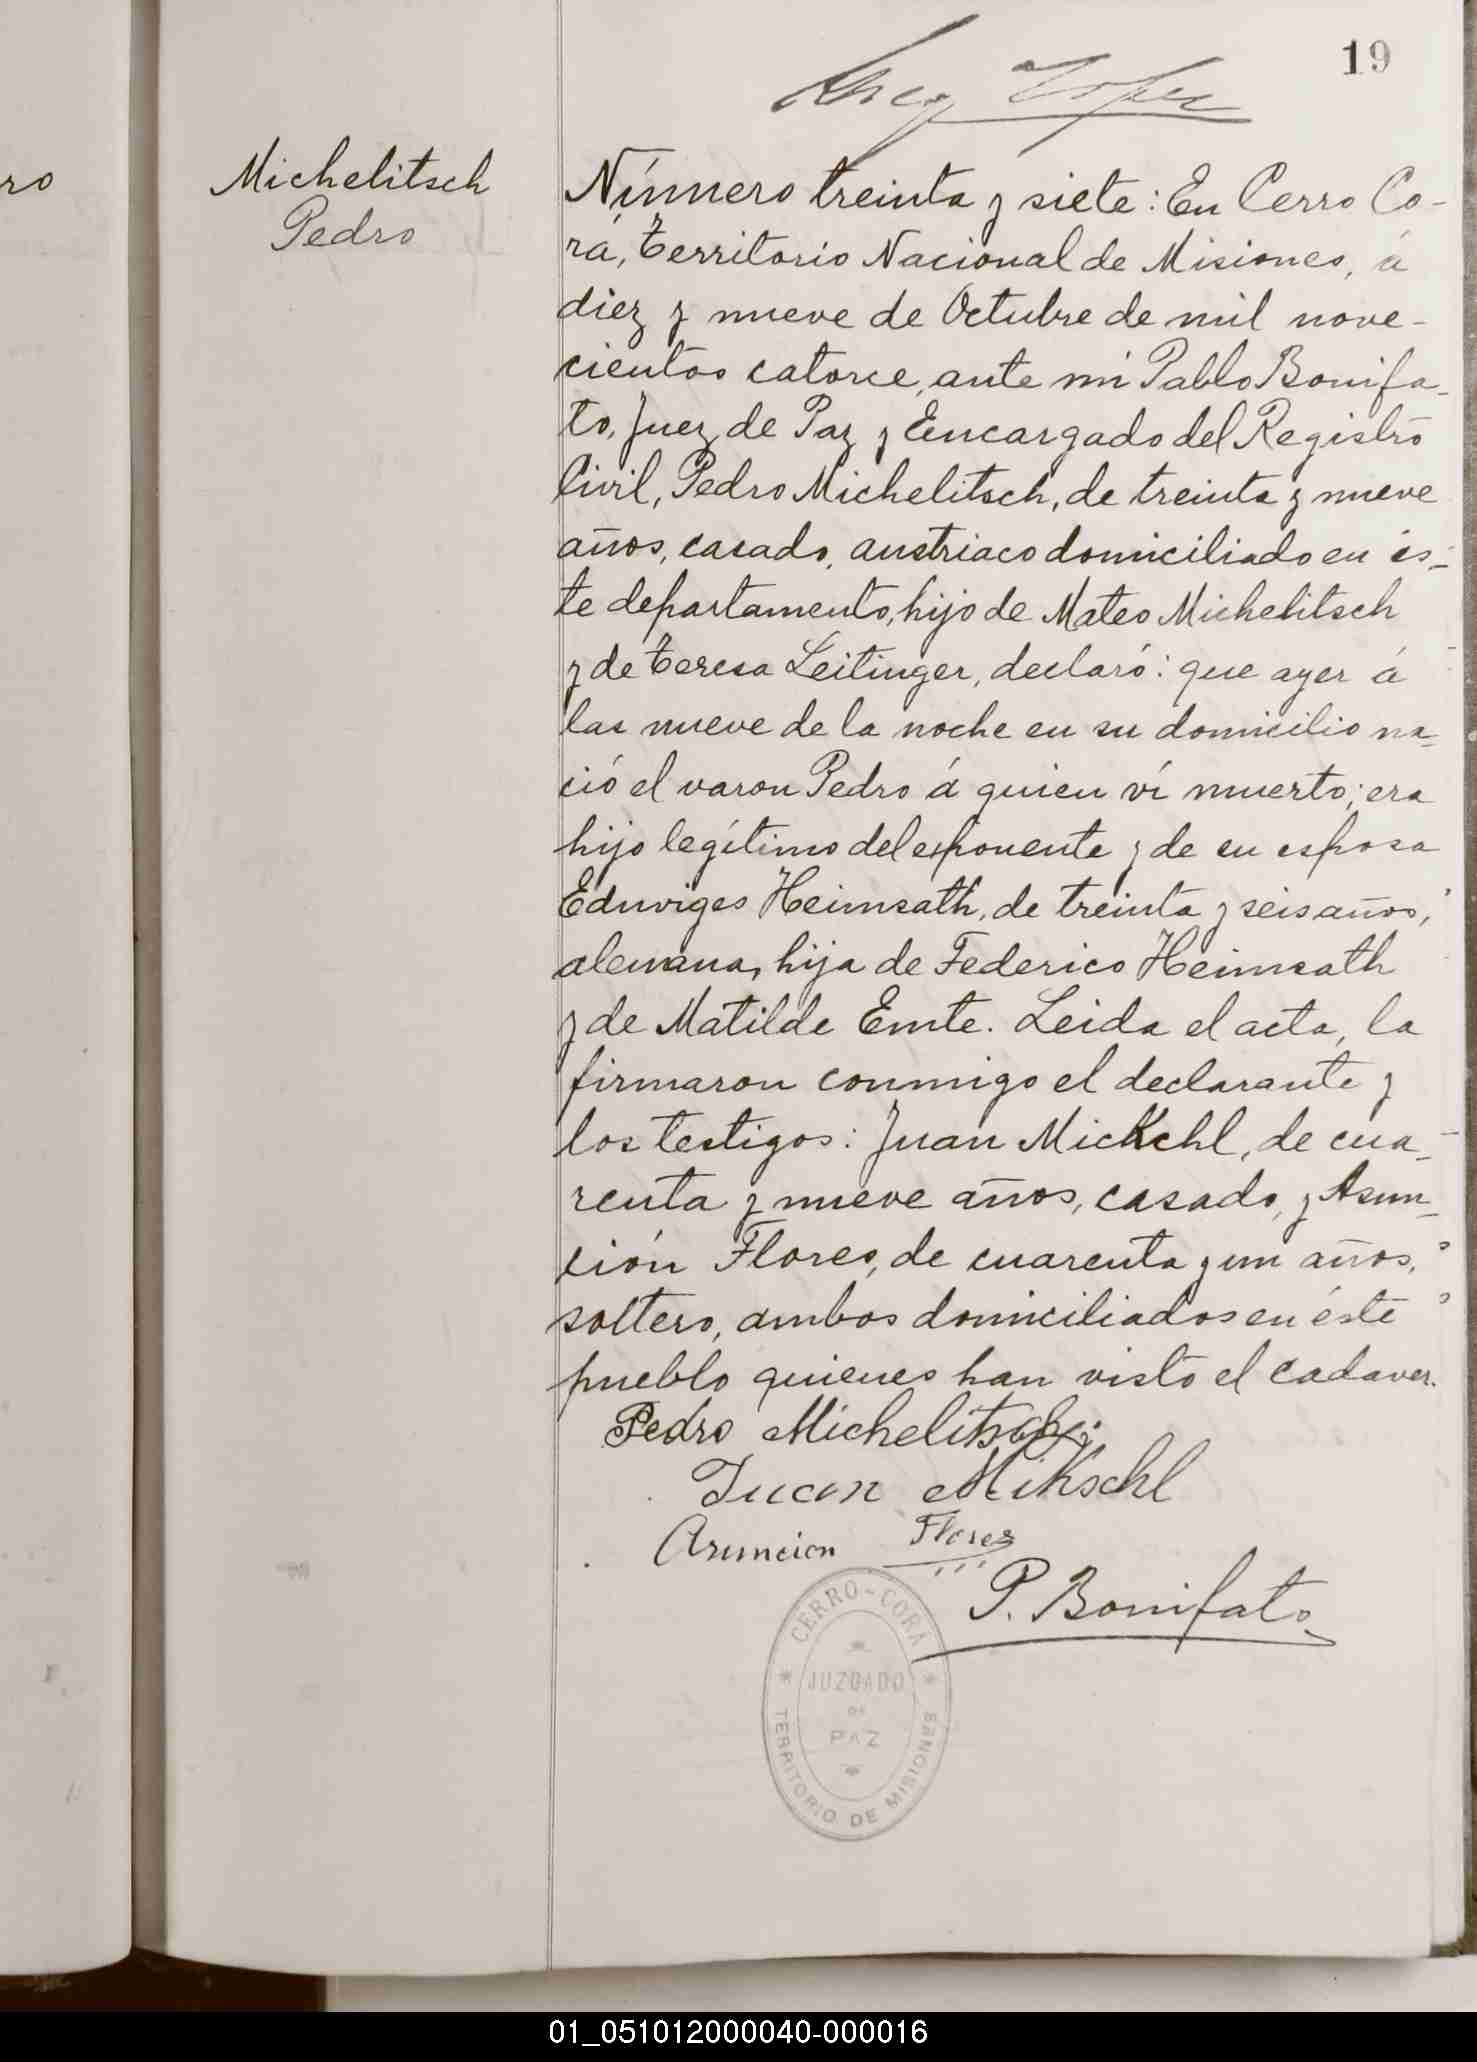 19
ro
Michelitsch
Pedro
Número treinta y siete: En Cerro Co-
rá, Territorio Nacional de Misiones, á
diez y nueve de Octubre de mil nove-
cientos catorce, ante mi Pablo Bonifa-
to, Juez de Paz y Encargado del Registro
Civil, Pedro Michelitsch, de treinta y nueve
años, casado, austriaco domiciliado en és-
te departamento, hijo de Mateo Michelitsch
y de Teresa Leitinger, declaró: que ayer á
las nueve de la noche en su domicilio na-
ció el varon Pedro á quien ví muerto; era
hijo legítimo del esponente y de su esposa
Eduviges Heimsath, de treinta y seis años,
alemana, hija de Federico Heimsath
y de Matilde Emte. Leida el acta, la
firmaron conmigo el declarante y
los testigos: Juan Mickchl, de cua-
renta y nueve años, casado, y Asun-
ción Flores, de cuarenta y un años,
soltero, ambos domiciliados en éste
pueblo quienes han visto el cadaver.
Pedro Michelitsch
Juan Mikschl
Asuncion Flores
P. Bonifato
CERRO-CORÁ
JUZGADO
DE
PAZ
TERRITORIO DE MISIONES
01_051012000040-000016